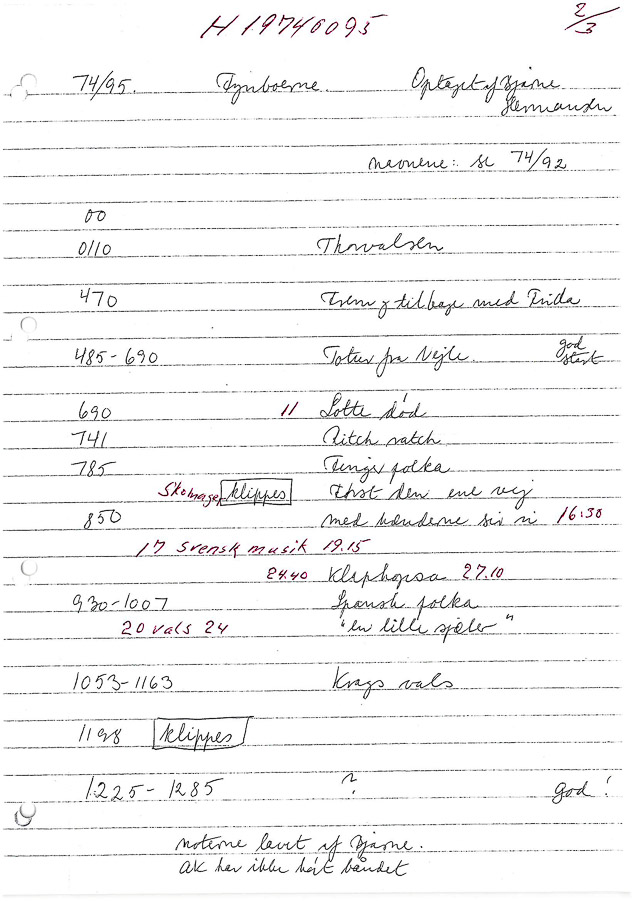 H 19740095 2/3
74/95. Fynboerne. Optaget af Bjarne
Hermansen
navnene: se 74/92
00
0110 Thorvalsen
470 Frem og tilbage med Frida
485-690 Totur fra Vejle. god start
690 11 Lotte død
741 Ritch ratch
785 Finger polka
Skomager klippes Først den ene vej
850 med hænderne sir vi 16:30
17 Svensk musik 19.15
24.40 Klaphopsa 27.10
930-1007 Spansk polka
20 vals 24 "en lille spiller"
1053-1163 Krags vals
1198 klippes
1225-1285 ? god!
noterne lavet af Bjarne.
AK har ikke hørt båndet